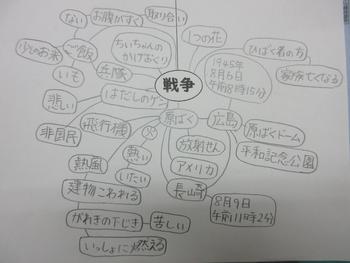 戦争
取り合い
お腹がすく
ない
ご飯
少しのお米
いも
兵隊
ちいちゃんの
かげおくり
1つの花
1945年
8月6日
午前8時15分
ひばく者の方
家族亡くなる
はだしのゲン
悲しい
非国民
飛行機
原ばく
広島
原ばくドーム
平和記念公園
放射せん
アメリカ
長崎
8月9日
午前11時2分
熱い
いたい
熱風
建物こわれる
がれきの下じき
苦しい
いっしょに燃える